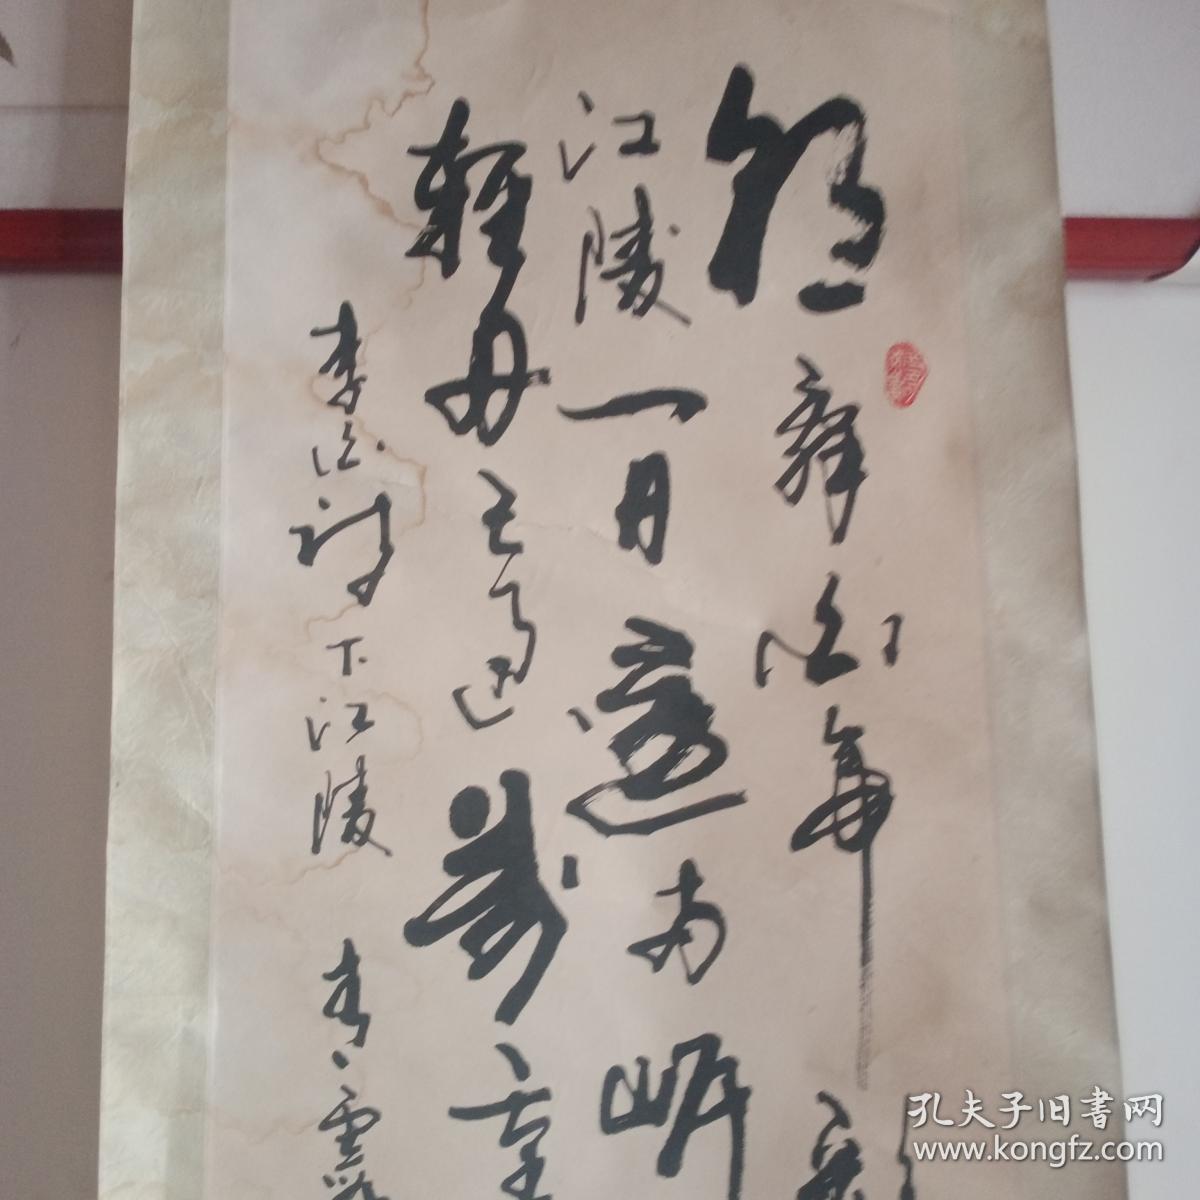 朝辞白帝彩
江陵一日還两岸
輕舟已過萬重
李白诗下江陵
孔夫子旧書网
www.kongfz.com